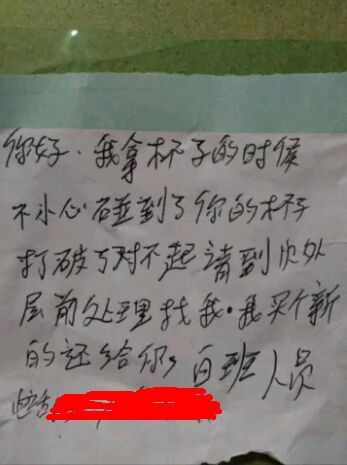 你好.我拿杯子的时候
不小心碰到了你的杯子
打破了对不起请到
层前处理找我.我买个新
的还给你,白班人员